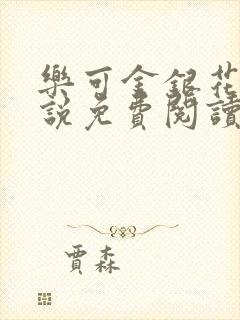 樂可金銀花
說免費閱讀
賈森